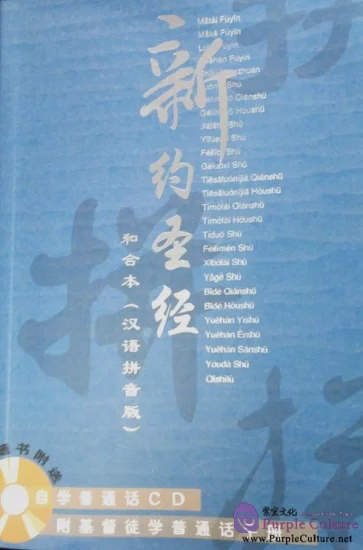 新约圣经
和合本(汉语拼音版)
Mǎtài Fúyīn
Mǎkě Fúyīn
Fúyīn
Fúyīn
Shū
Qiánshū
Hòushū
Shū
Shū
Shū
Gēluóxī Shū
Tiēsāluóníjiā Qiánshū
Tiēsāluóníjiā Hòushū
Tímótài Qiánshū
Tímótài Hòushū
Tíduō Shū
Féilìmén Shū
Xībólái Shū
Yǎgè Shū
Bǐdé Qiánshū
Bǐdé Hòushū
Yuēhàn Yīshū
Yuēhàn Èrshū
Yuēhàn Sānshū
Yóudà Shū
Qǐshìlù
拼
随书附送
自学普通话CD
附基督徒学普通话
紫宸文化
Purple Culture
www.PurpleCulture.net